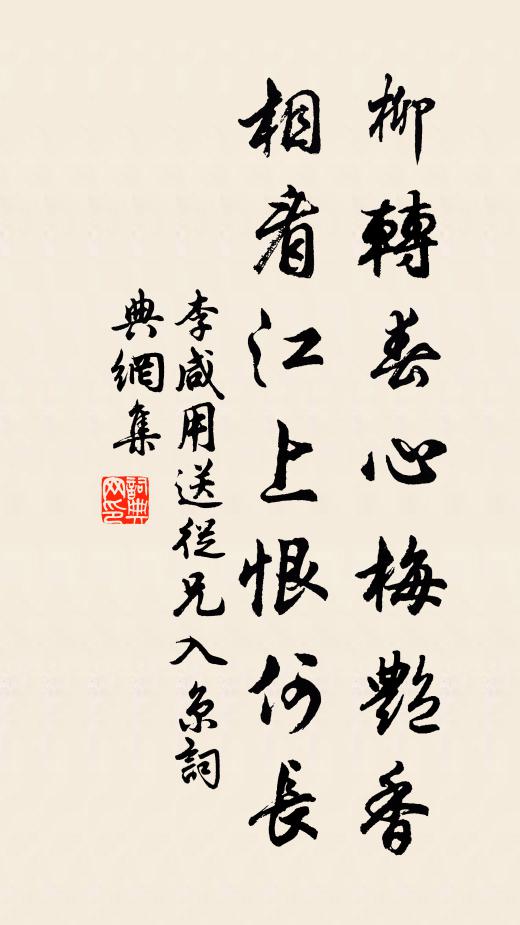 柳轉春心梅艷香
相看江上恨何長
李咸用送從兄入京詞
典網集
詞典
网印